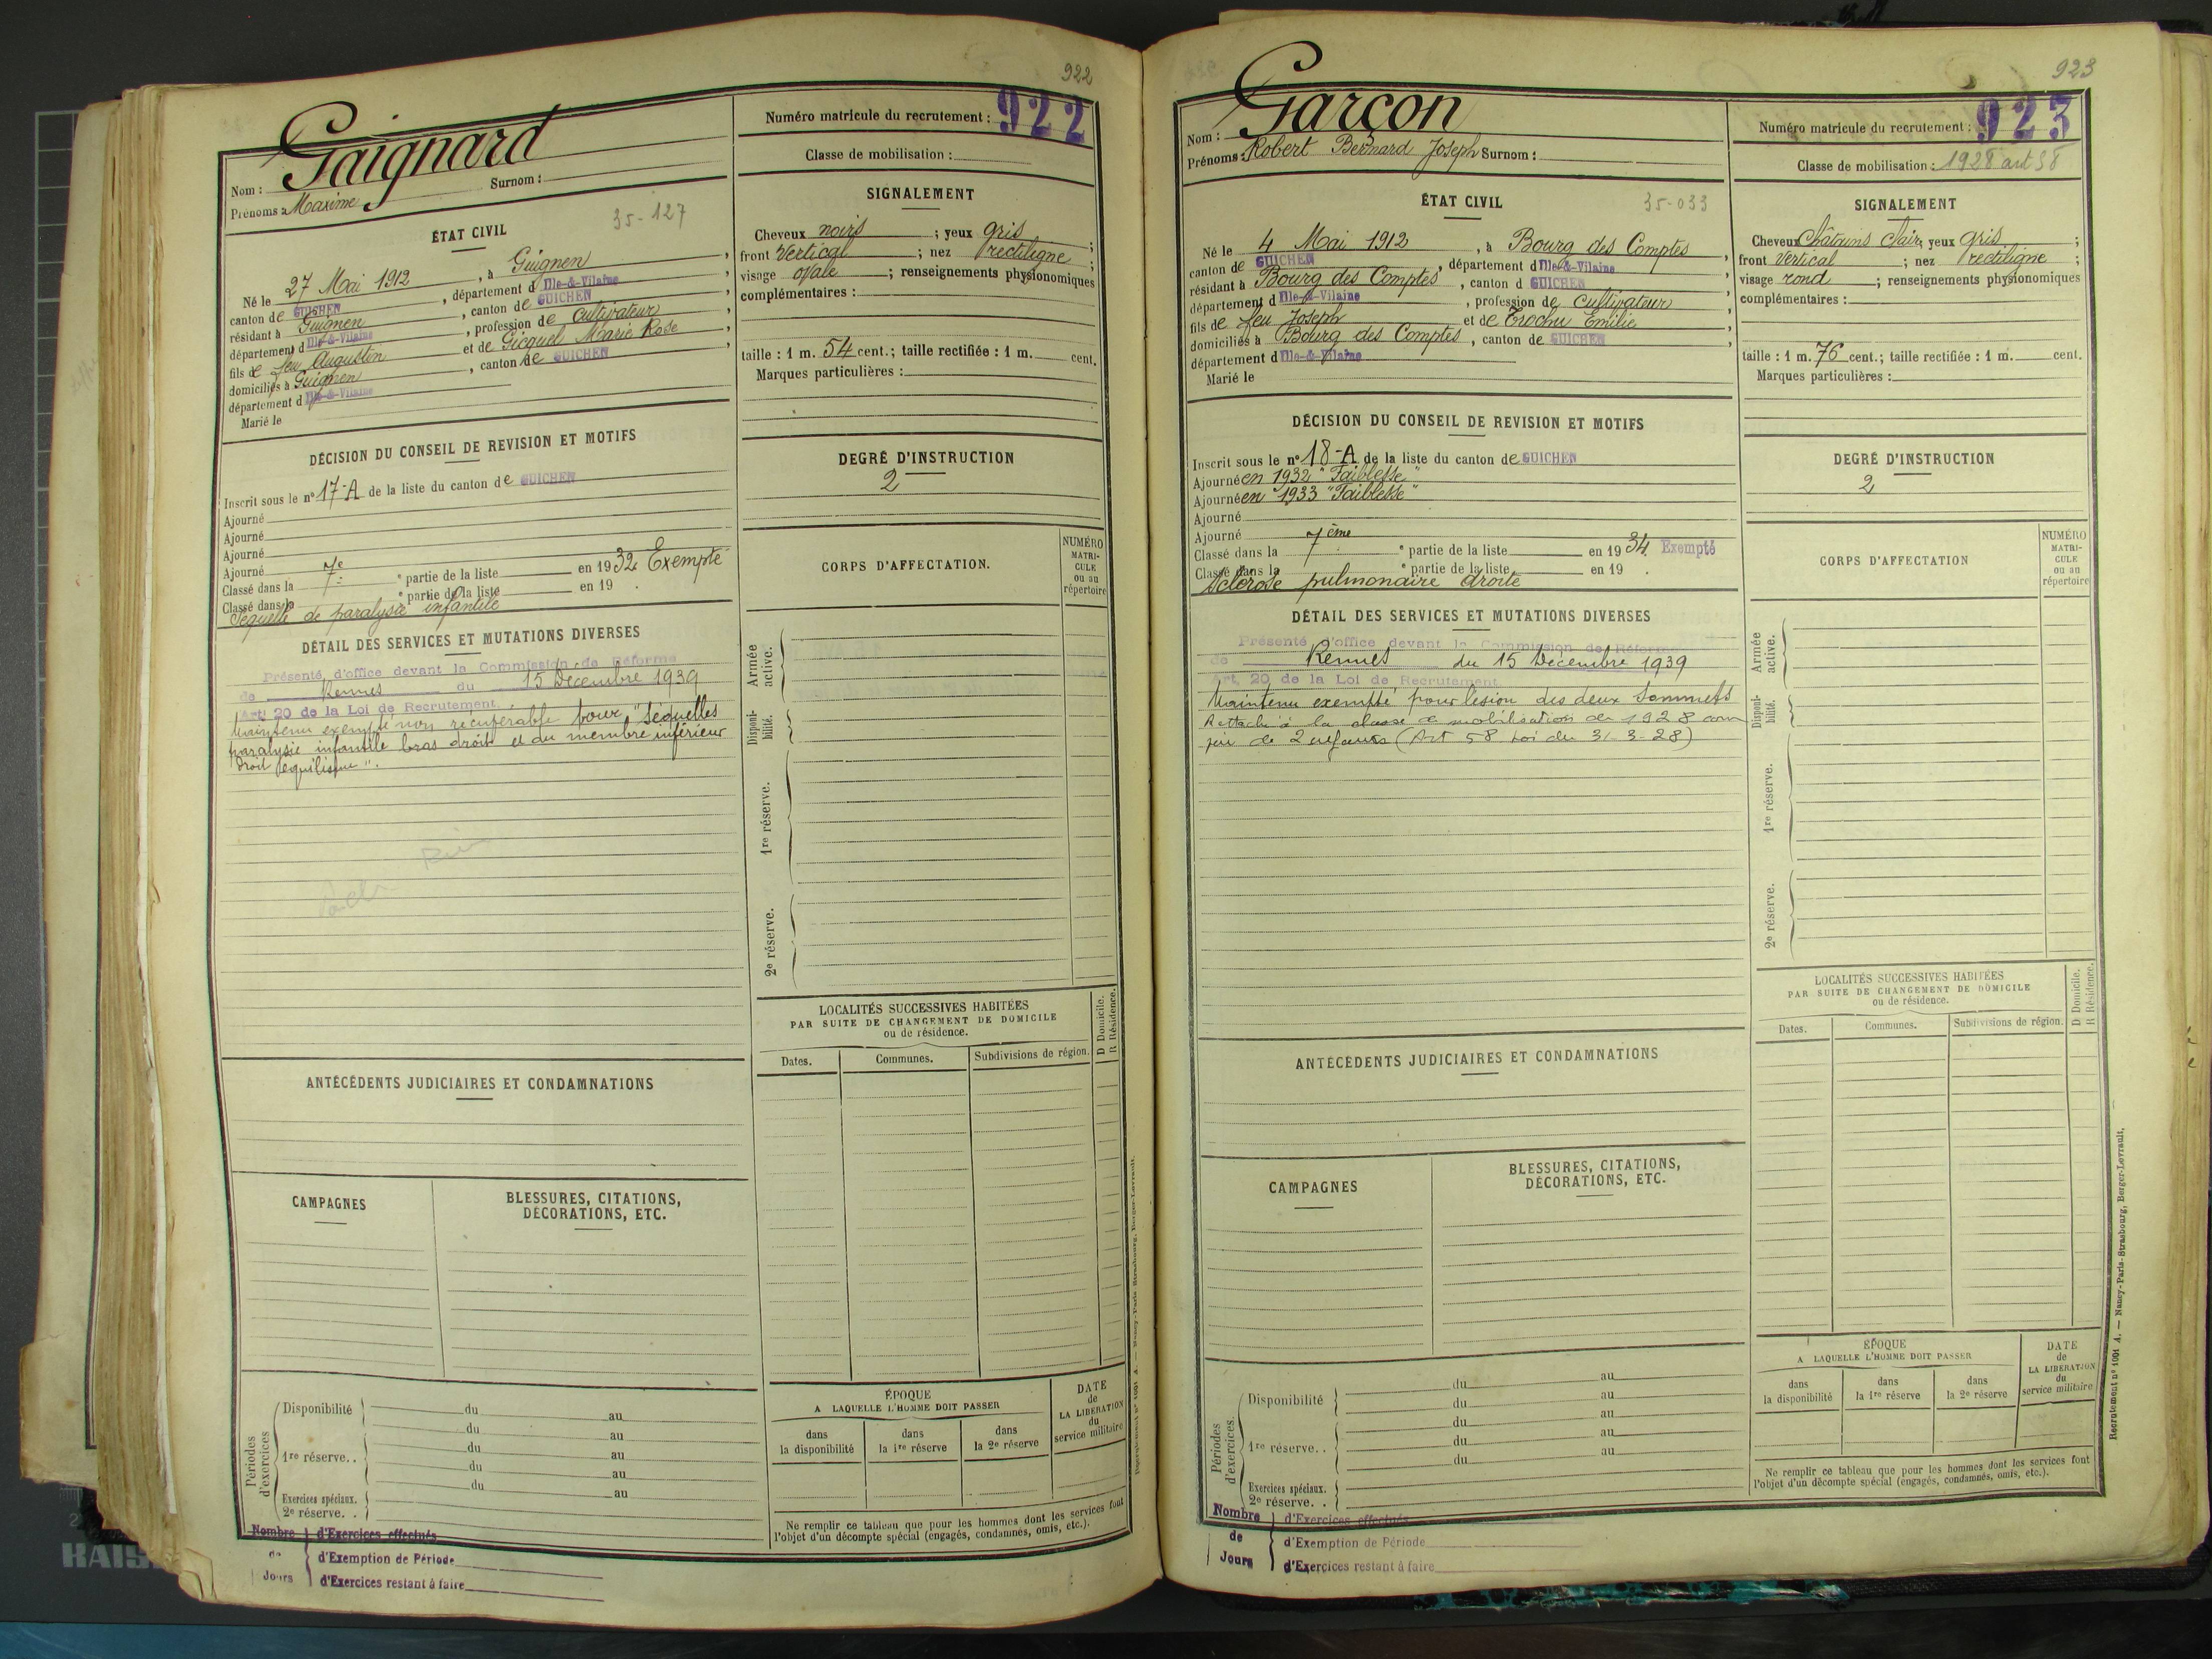 922
Gaignard
Nom :
Surnom :
Prénoms : Maxime
35-127
ÉTAT CIVIL
Né le 27 Mai 1912, à Guignen,
canton de GUICHEN, département d Ille-&-Vilaine,
résidant à Guignen, canton de GUICHEN,
département d Ille-&-Vilaine, profession de cultivateur,
fils de feu Augustin et de Gicquel Marie Rose,
domiciliés à Guignen, canton de GUICHEN
département d Ille-&-Vilaine
Marié le
DÉCISION DU CONSEIL DE REVISION ET MOTIFS
Inscrit sous le n° 17-A de la liste du canton de GUICHEN
Ajourné
Ajourné
Ajourné
Ajourné
Classé dans la 7e partie de la liste en 1932 Exempté
Classé dans la ° partie de la liste en 19 .
Séquelle de paralysie infantile
DÉTAIL DES SERVICES ET MUTATIONS DIVERSES
Présenté d'office devant la Commission de Réforme
de Rennes du 15 Décembre 1939
Art. 20 de la Loi de Recrutement.
Maintenu exempté non récupérable pour "séquelles
paralysie infantile bras droit et du membre inférieur
droit
ANTÉCÉDENTS JUDICIAIRES ET CONDAMNATIONS
CAMPAGNES
BLESSURES, CITATIONS,
DÉCORATIONS, ETC.
Périodes d'exercices
Disponibilité
du au
du au
1re réserve..
du au
du au
du au
Exercices spéciaux.
2e réserve. .
Nombre de Jours
d'Exercices effectués
d'Exemption de Période
d'Exercices restant à faire
Numéro matricule du recrutement : 922
Classe de mobilisation :
SIGNALEMENT
Cheveux noirs ; yeux gris ;
front Vertical ; nez rectiligne ;
visage ovale ; renseignements physionomiques
complémentaires :
taille : 1 m. 54 cent.; taille rectifiée : 1 m. cent.
Marques particulières :
DEGRÉ D'INSTRUCTION
2
CORPS D'AFFECTATION.
NUMÉRO
MATRI-
CULE
ou au
répertoire
Armée
active.
Disponi-
bilité.
1re réserve.
2e réserve.
LOCALITÉS SUCCESSIVES HABITÉES
PAR SUITE DE CHANGEMENT DE DOMICILE
ou de résidence.
D Domicile.
R Résidence.
Dates.
Communes.
Subdivisions de région.
ÉPOQUE
A LAQUELLE L'HOMME DOIT PASSER
dans
la disponibilité
dans
la 1re réserve
dans
la 2e réserve
DATE
de
LA LIBÉRATION
du
service militaire
Ne remplir ce tableau que pour les hommes dont les services font
l'objet d'un décompte spécial (engagés, condamnés, omis, etc.).
Recrutement n° 1001 A. — Nancy-Paris-Strasbourg, Berger-Levrault.
923
Garçon
Nom :
Prénoms : Robert Bernard Joseph Surnom :
35-033
ÉTAT CIVIL
Né le 4 Mai 1912, à Bourg des Comptes
canton de GUICHEN, département d Ille-&-Vilaine,
résidant à Bourg des Comptes, canton d GUICHEN,
département d Ille-&-Vilaine, profession de cultivateur,
fils de feu Joseph et de Trochu Emilie,
domiciliés à Bourg des Comptes, canton de GUICHEN,
département d Ille-&-Vilaine
Marié le
DÉCISION DU CONSEIL DE REVISION ET MOTIFS
Inscrit sous le n° 18-A de la liste du canton de GUICHEN
Ajourné en 1932 "Faiblesse"
Ajourné en 1933 "Faiblesse"
Ajourné
Ajourné
Classé dans la 7ème ° partie de la liste en 1934 Exempté
Classé dans la ° partie de la liste en 19 .
Sclérose pulmonaire droite
DÉTAIL DES SERVICES ET MUTATIONS DIVERSES
Présenté d'office devant la Commission de Réforme
de Rennes du 15 Décembre 1939
Art. 20 de la Loi de Recrutement
Maintenu exempté pour lésion des deux sommets
Rattaché à la classe de mobilisation de 1928 com
père de 2 enfants (Art 58 Loi du 31-3-28)
ANTÉCÉDENTS JUDICIAIRES ET CONDAMNATIONS
CAMPAGNES
BLESSURES, CITATIONS,
DÉCORATIONS, ETC.
Périodes d'exercices.
Disponibilité
du au
du au
1re réserve. .
du au
du au
du au
Exercices spéciaux.
2e réserve. .
Nombre de Jours
d'Exercices effectués
d'Exemption de Période
d'Exercices restant à faire
Numéro matricule du recrutement : 923
Classe de mobilisation : 1928 art 58
SIGNALEMENT
Cheveux Châtains clair; yeux gris ;
front Vertical ; nez rectiligne ;
visage rond ; renseignements physionomiques
complémentaires :
taille : 1 m. 76 cent.; taille rectifiée : 1 m. cent.
Marques particulières :
DEGRÉ D'INSTRUCTION
2
CORPS D'AFFECTATION
NUMÉRO
MATRI-
CULE
ou au
répertoire
Armée
active.
Disponi-
bilité.
1re réserve.
2e réserve.
LOCALITÉS SUCCESSIVES HABITÉES
PAR SUITE DE CHANGEMENT DE DOMICILE
ou de résidence.
D Domicile.
R Résidence.
Dates.
Communes.
Subdivisions de région.
ÉPOQUE
A LAQUELLE L'HOMME DOIT PASSER
dans
la disponibilité
dans
la 1re réserve
dans
la 2e réserve
DATE
de
LA LIBÉRATION
du
service militaire
Ne remplir ce tableau que pour les hommes dont les services font
l'objet d'un décompte spécial (engagés, condamnés, omis, etc.).
Recrutement n° 1001 A. — Nancy-Paris-Strasbourg, Berger-Levrault,